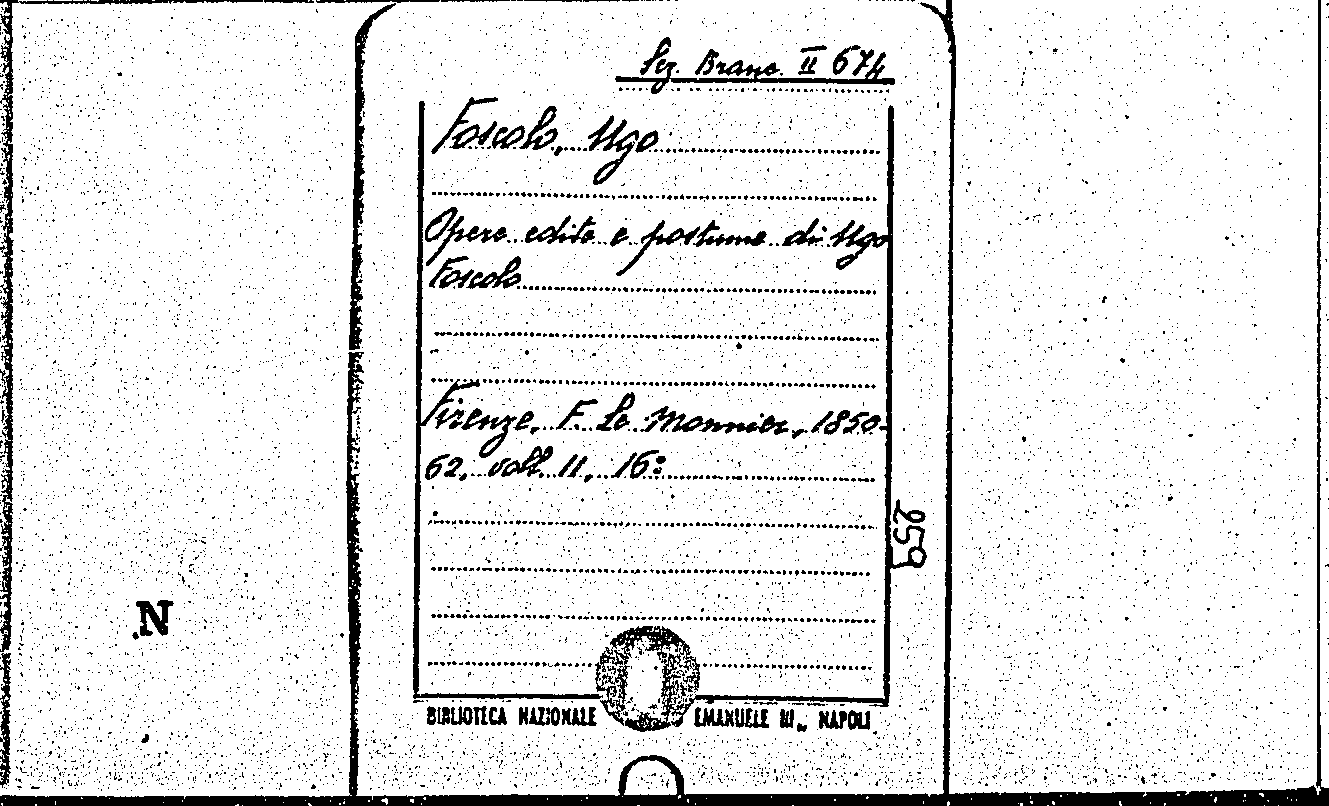 Sez. Branc. II 674
Foscolo, Ugo
Opere edite e postume di Ugo
Foscolo
Firenze, F. Le Monnier, 1850-
62, voll. 11, 16°
259
N
BIBLIOTECA NAZIONALE EMANUELE III„ NAPOLI